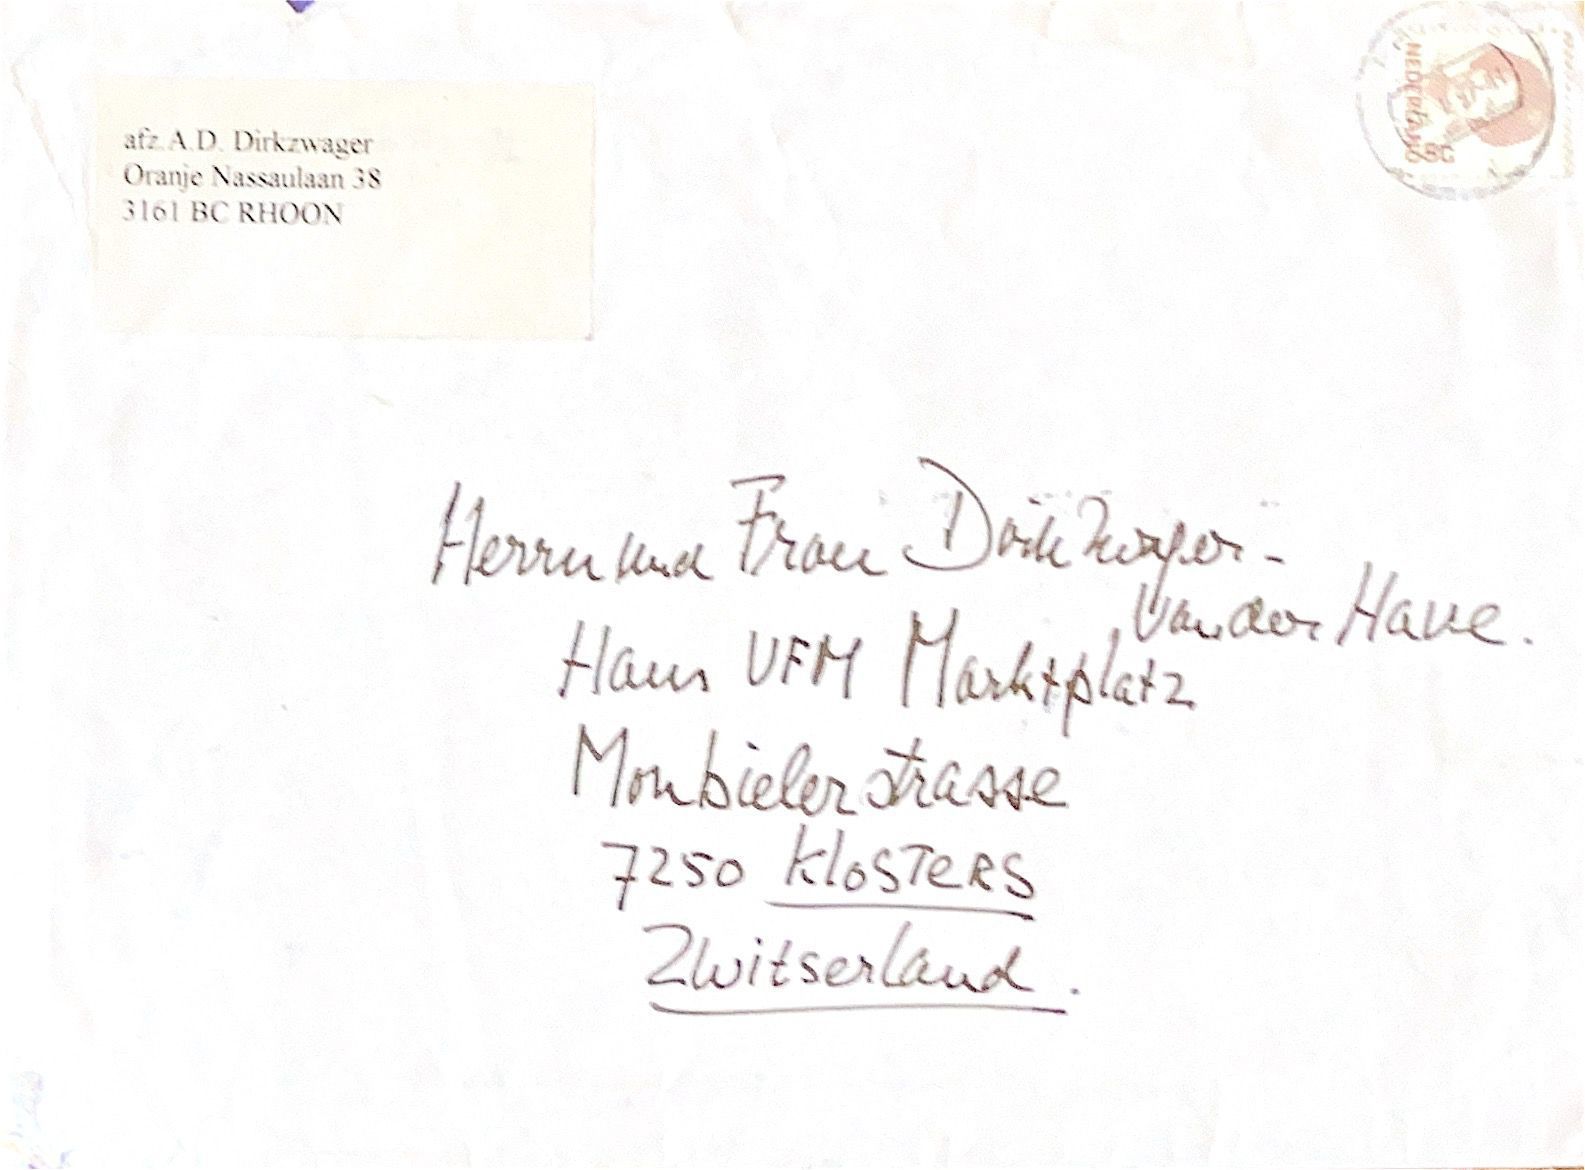 afz. A.D. Dirkzwager
Oranje Nassaulaan 38
3161 BC RHOON
NEDERLAND
Herrn und Frau Dirkzwager-
van der Have.
Haus VFM Marktplatz
Monbielerstrasse
7250 KLOSTERS
Zwitserland.